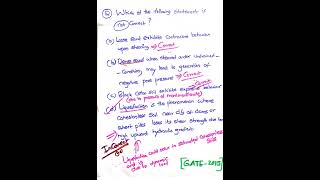 ⑥ Which of the following statements is
not Correct ?
(a) Loose sand exhibits contractive behavior
upon shearing → Correct
(b) Dense sand when sheared under undrained
Condition may lead to generation of
negative pore pressure → Correct
(c) Black Cotton soil exhibits expansive behavior
(due to presence of montmorillonite) Correct
(d) Liquefaction is the phenomenon where
Cohesionless soil near d/s of dams or
sheet piles loses its shear strength due to
high upward hydraulic gradient.
InCorrect
Liquefaction could occur in saturated Cohesionless
soil
due to dynamic
load
[GATE-2015]